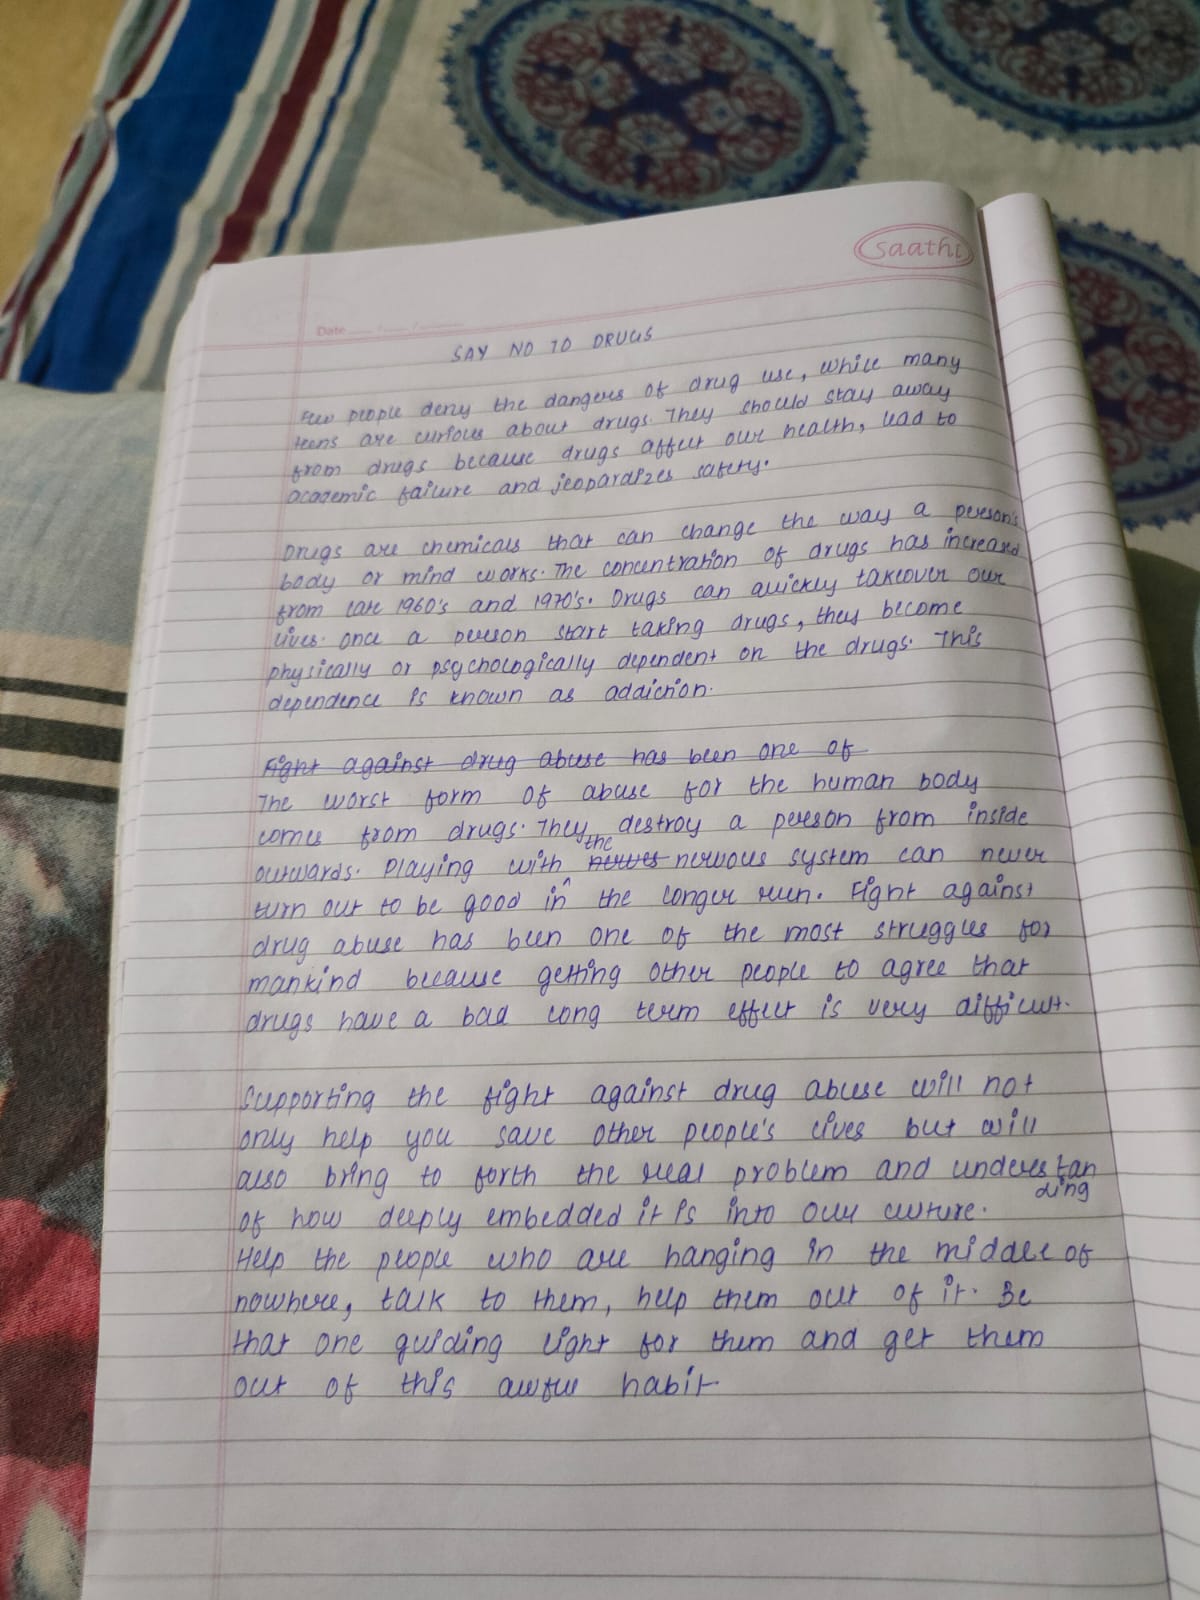 saathi
Date
SAY NO TO DRUGS
Few people deny the dangers of drug use, while many
teens are curious about drugs. They should stay away
from drugs because drugs affect our health, lead to
academic failure and jeopardizes safety.
Drugs are chemicals that can change the way a person's
body or mind works. The concentration of drugs has increased
from late 1960's and 1970's. Drugs can quickly takeover our
lives. once a person start taking drugs, they become
physically or psychologically dependent on the drugs. This
dependence is known as addiction.
Fight against drug abuse has been one of
The worst form of abuse for the human body
comes from drugs. They destroy a person from inside
outwards. Playing with the nerves nervous system can never
turn out to be good in the longer run. Fight against
drug abuse has been one of the most struggles for
mankind because getting other people to agree that
drugs have a bad long term effect is very difficult.
Supporting the fight against drug abuse will not
only help you save other people's lives but will
also bring to forth the real problem and understan
ding
of how deeply embedded it is into our culture.
Help the people who are hanging in the middle of
nowhere, talk to them, help them out of it. Be
that one guiding light for them and get them
out of this awful habit